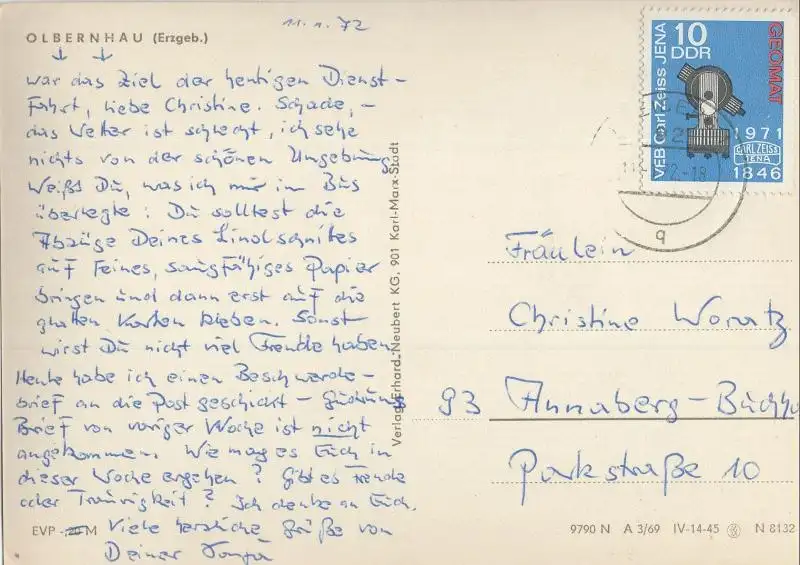 11.1.72
OLBERNHAU (Erzgeb.)
war das Ziel der heutigen Dienst-
Fahrt, liebe Christine. Schade, –
das Wetter ist schlecht, ich sehe
nichts von der schönen Umgebung.
Weißt Du, was ich mir im Bus
überlegte: Du solltest die
Abzüge Deines Linolschnittes
auf feines, saugfähiges Papier
bringen und dann erst auf die
glatten Karten kleben. Sonst
wirst Du nicht viel Freude haben.
Heute habe ich einen Beschwerde-
brief an die Post geschickt –
Brief von voriger Woche ist nicht
angekommen. Wie mag es Euch in
dieser Woche ergehen? Gibt es Freude
oder Traurigkeit? Ich denke an Euch.
Viele herzliche Grüße von
Deiner
EVP -,20 M
Verlag Erhard Neubert KG, 901 Karl-Marx-Stadt
10
DDR
VEB Carl Zeiss JENA
GEOMAT
1971
CARL ZEISS
JENA
1846
2-18
q
Fräulein
Christine
93 Annaberg-Buchho
Parkstraße 10
9790 N A 3/69 IV-14-45 N 8132